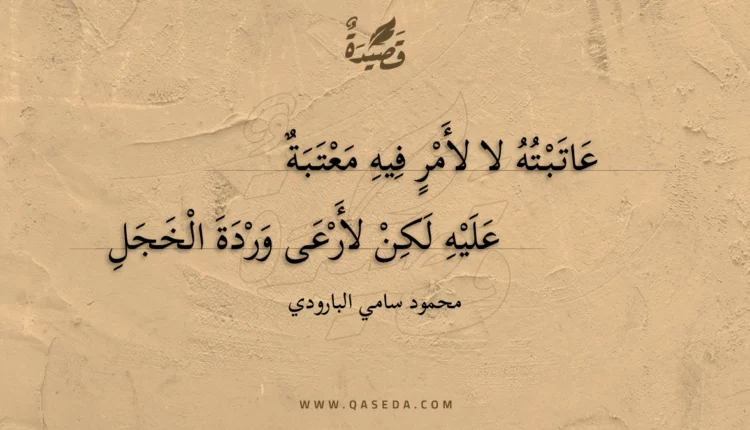 قَصِيدَةٌ
عَاتَبْتُهُ لا لأَمْرٍ فِيهِ مَعْتَبَةٌ
عَلَيْهِ لَكِنْ لأَرْعَى وَرْدَةَ الْخَجَلِ
محمود سامي البارودي
WWW.QASEDA.COM